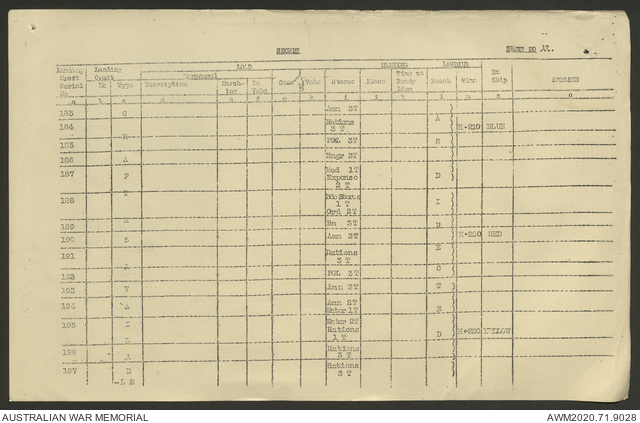 SECRET
SHEET NO 17.
LOAD LANDING
Landing Craft Serial No Landing Craft Personnel Guns Vehs Stores Place Time at Ready Line Beach Time Ex Ship REMARKS
No Type Description March-ing In Vehs
a b c d e f g h i j k l
183 C Amn 3T A
184 Rations 3 T H+210 BLUE
H
185 POL 3T S
186 A Engr 3T
187 F Med 1T
2 T D
188 1 T I
Ord 2T
A
189 Bn 3T R
190 S Amn 3T H+220 RED
191 Rations 3 T E
A
192 POL 3T C
193 V Amn 3T T
194 A Amn 2T
Water 1T E
195 I Water 2T
Rations 1 T D H+220 YELLOW
L
196 A Rations 3 T
197 D Rations 3 T
L E
AUSTRALIAN WAR MEMORIAL
AWM2020.71.9028